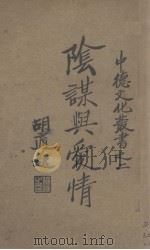 中德文化叢書之
陰謀與愛情
胡適